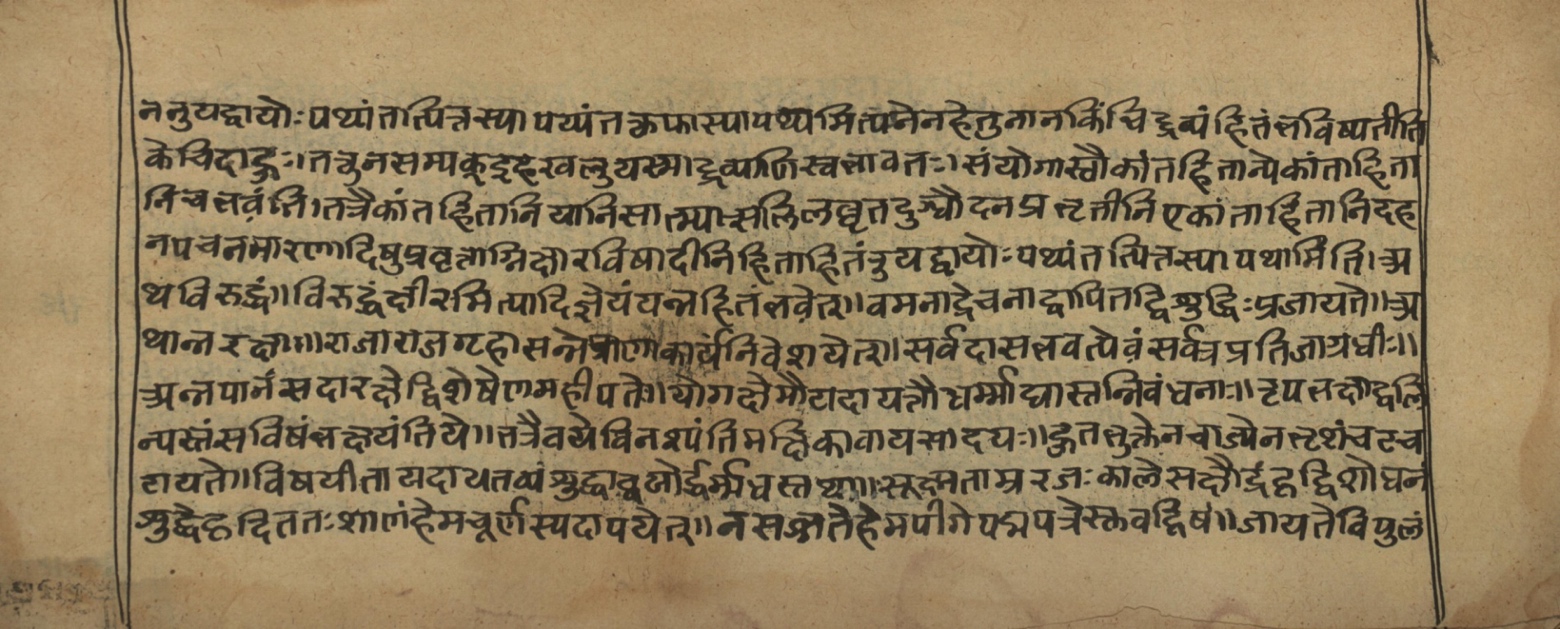 ननुयद्वायोः पथ्यं तत्पित्तस्यापथ्यं तत्कफास्यापथ्यमित्यनेनहेतुनानकिंचिद्द्रव्यंहितंभविष्यतीति
केचिदाहुः। तत्तुनसम्यक्इहखलुयस्माद्द्रव्याणिस्वभावतः। संयोगास्चैकांतहितान्येकांताहिता
निचभवंति। तत्रैकांतहितानियानिसात्म्यासलिलघृतदुग्धौदनप्रभृतीनिएकांताहितानिदह
नपचनमारणादिषुप्रवृत्ताग्निक्षारविषादीनिहिताहितंतुयद्वायोः पथ्यंतत्पित्तस्यापथ्यमिति।अ
थविरुद्धं॥ विरुद्धंक्षीरमित्यादिज्ञेयंयन्नहितंभवेत्॥ वमनाद्रेचनाद्वापितद्विशुद्धिः प्रजायते॥अ
थान्नरक्षा॥ राजाराजगृहासन्नेप्राणाकार्यंनिवेशयेत्॥ सर्वदासभवत्येवंसर्वत्रप्रतिजाग्रधीः॥
अन्नपानंसदारक्षेद्विशेषेणमहीपतेः॥ योगक्षेमौयदायत्तौधर्म्माद्यास्तन्निबंधनाः॥ नृपभक्षाद्वलि
न्यस्तंसविषंभक्षयंतिये॥ तत्रैवयेविनश्यंतिमक्षिकावायसादयः॥ हुतभुक्तेनचाज्येनभृशंचटच
टायते॥ विषयीता
शुद्धेहृदिततः शाणंहेमचूर्णस्यदापयेत्॥ नसज्जतेहेमपांगेपद्मपत्रेस्तवद्विषं॥ जायतेविपुलं